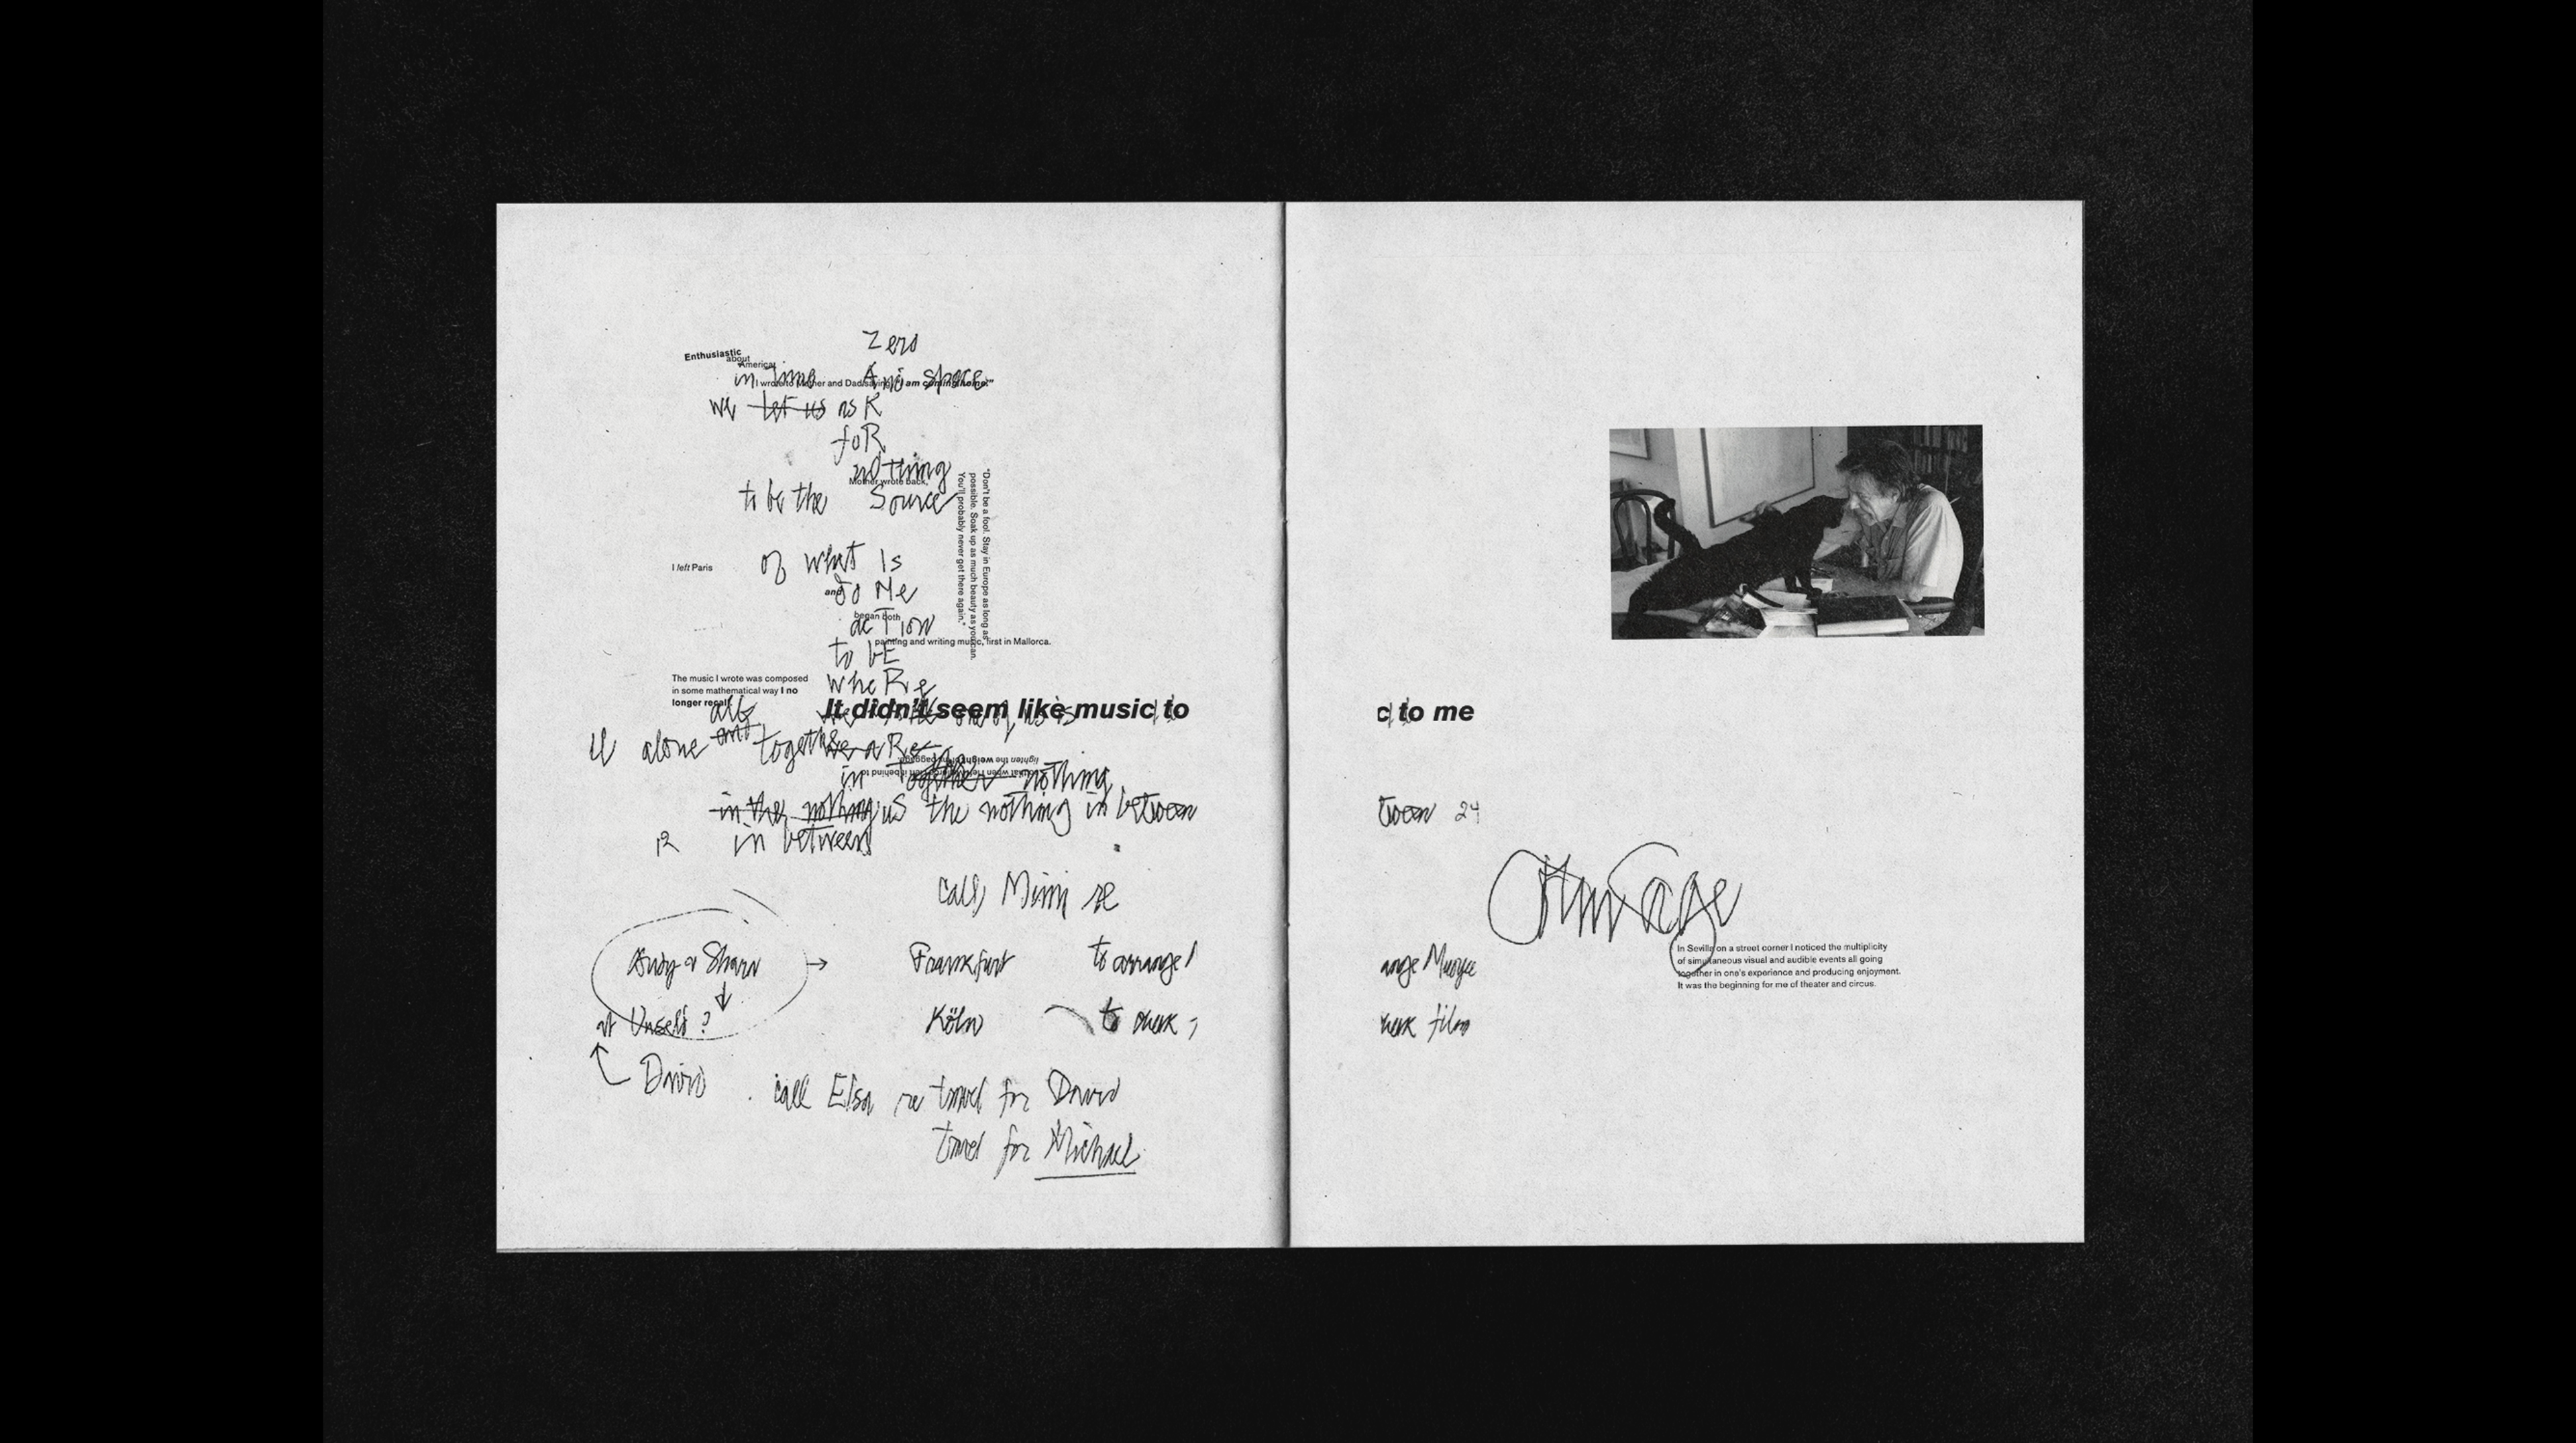 Zero
Enthusiastic
about
America,
I wrote to Mother and Dad saying, "I am coming home."
in Time And space
we let us asK
foR
nothing
Mother wrote back,
to be the Source
"Don't be a fool. Stay in Europe as long as
possible. Soak up as much beauty as you can.
You'll probably never get there again."
of what Is
I left Paris
and
To Me
began both
acTion
painting and writing music, first in Mallorca.
to bE
wheRe
The music I wrote was composed
in some mathematical way I no
longer recall.
It didn't seem like music to
alone and together
we aRe
so that when I left Mallorca I left it behind to
lighten the weight of my baggage.
in Together nothing
in the nothing us the nothing in between
12 in between
call Mimi re
Frankfurt to arrange
at ?
Köln to
David
call Elsa re travel for David
travel for Michael
c to me
tween 24
John Cage
In Sevilla on a street corner I noticed the multiplicity
of simultaneous visual and audible events all going
together in one's experience and producing enjoyment.
It was the beginning for me of theater and circus.
ange
film